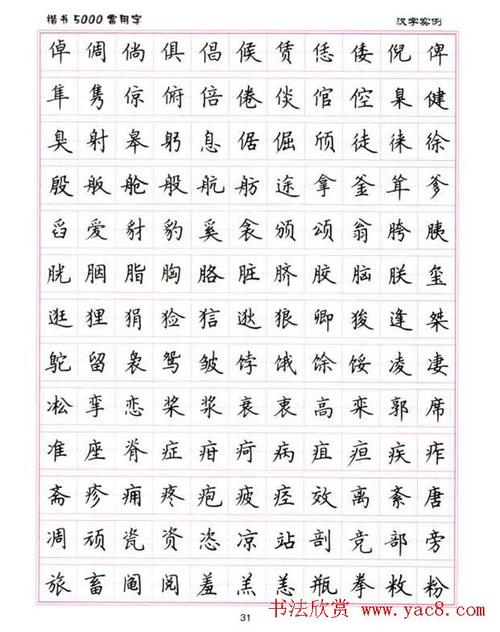 楷书5000常用字 汉字实例
倬 倜 倘 俱 倡 候 赁 恁 倭 倪 俾
隼 隽 倞 俯 倍 倦 倓 倌 倥 臬 健
臭 射 皋 躬 息 倨 倔 颀 徒 徕 徐
殷 舨 舱 般 航 舫 途 拿 釜 耸 爹
舀 爱 豺 豹 奚 衾 颁 颂 翁 胯 胰
胱 胭 脂 胸 胳 脏 脐 胶 脑 朕 玺
逛 狸 狷 猃 狺 逖 狼 卿 狻 逢 桀
鸵 留 袅 鸳 皱 饽 饿 馀 馁 凌 凄
凇 挛 恋 桨 浆 衰 衷 高 栾 郭 席
准 座 脊 症 疳 疴 病 疽 疸 疾 痄
斋 疹 痈 疼 疱 疲 痉 效 离 紊 唐
凋 顽 瓷 资 恣 凉 站 剖 竞 部 旁
旅 畜 阃 阅 羞 羔 恙 瓶 拳 敉 粉
31
书法欣赏 www.yac8.com